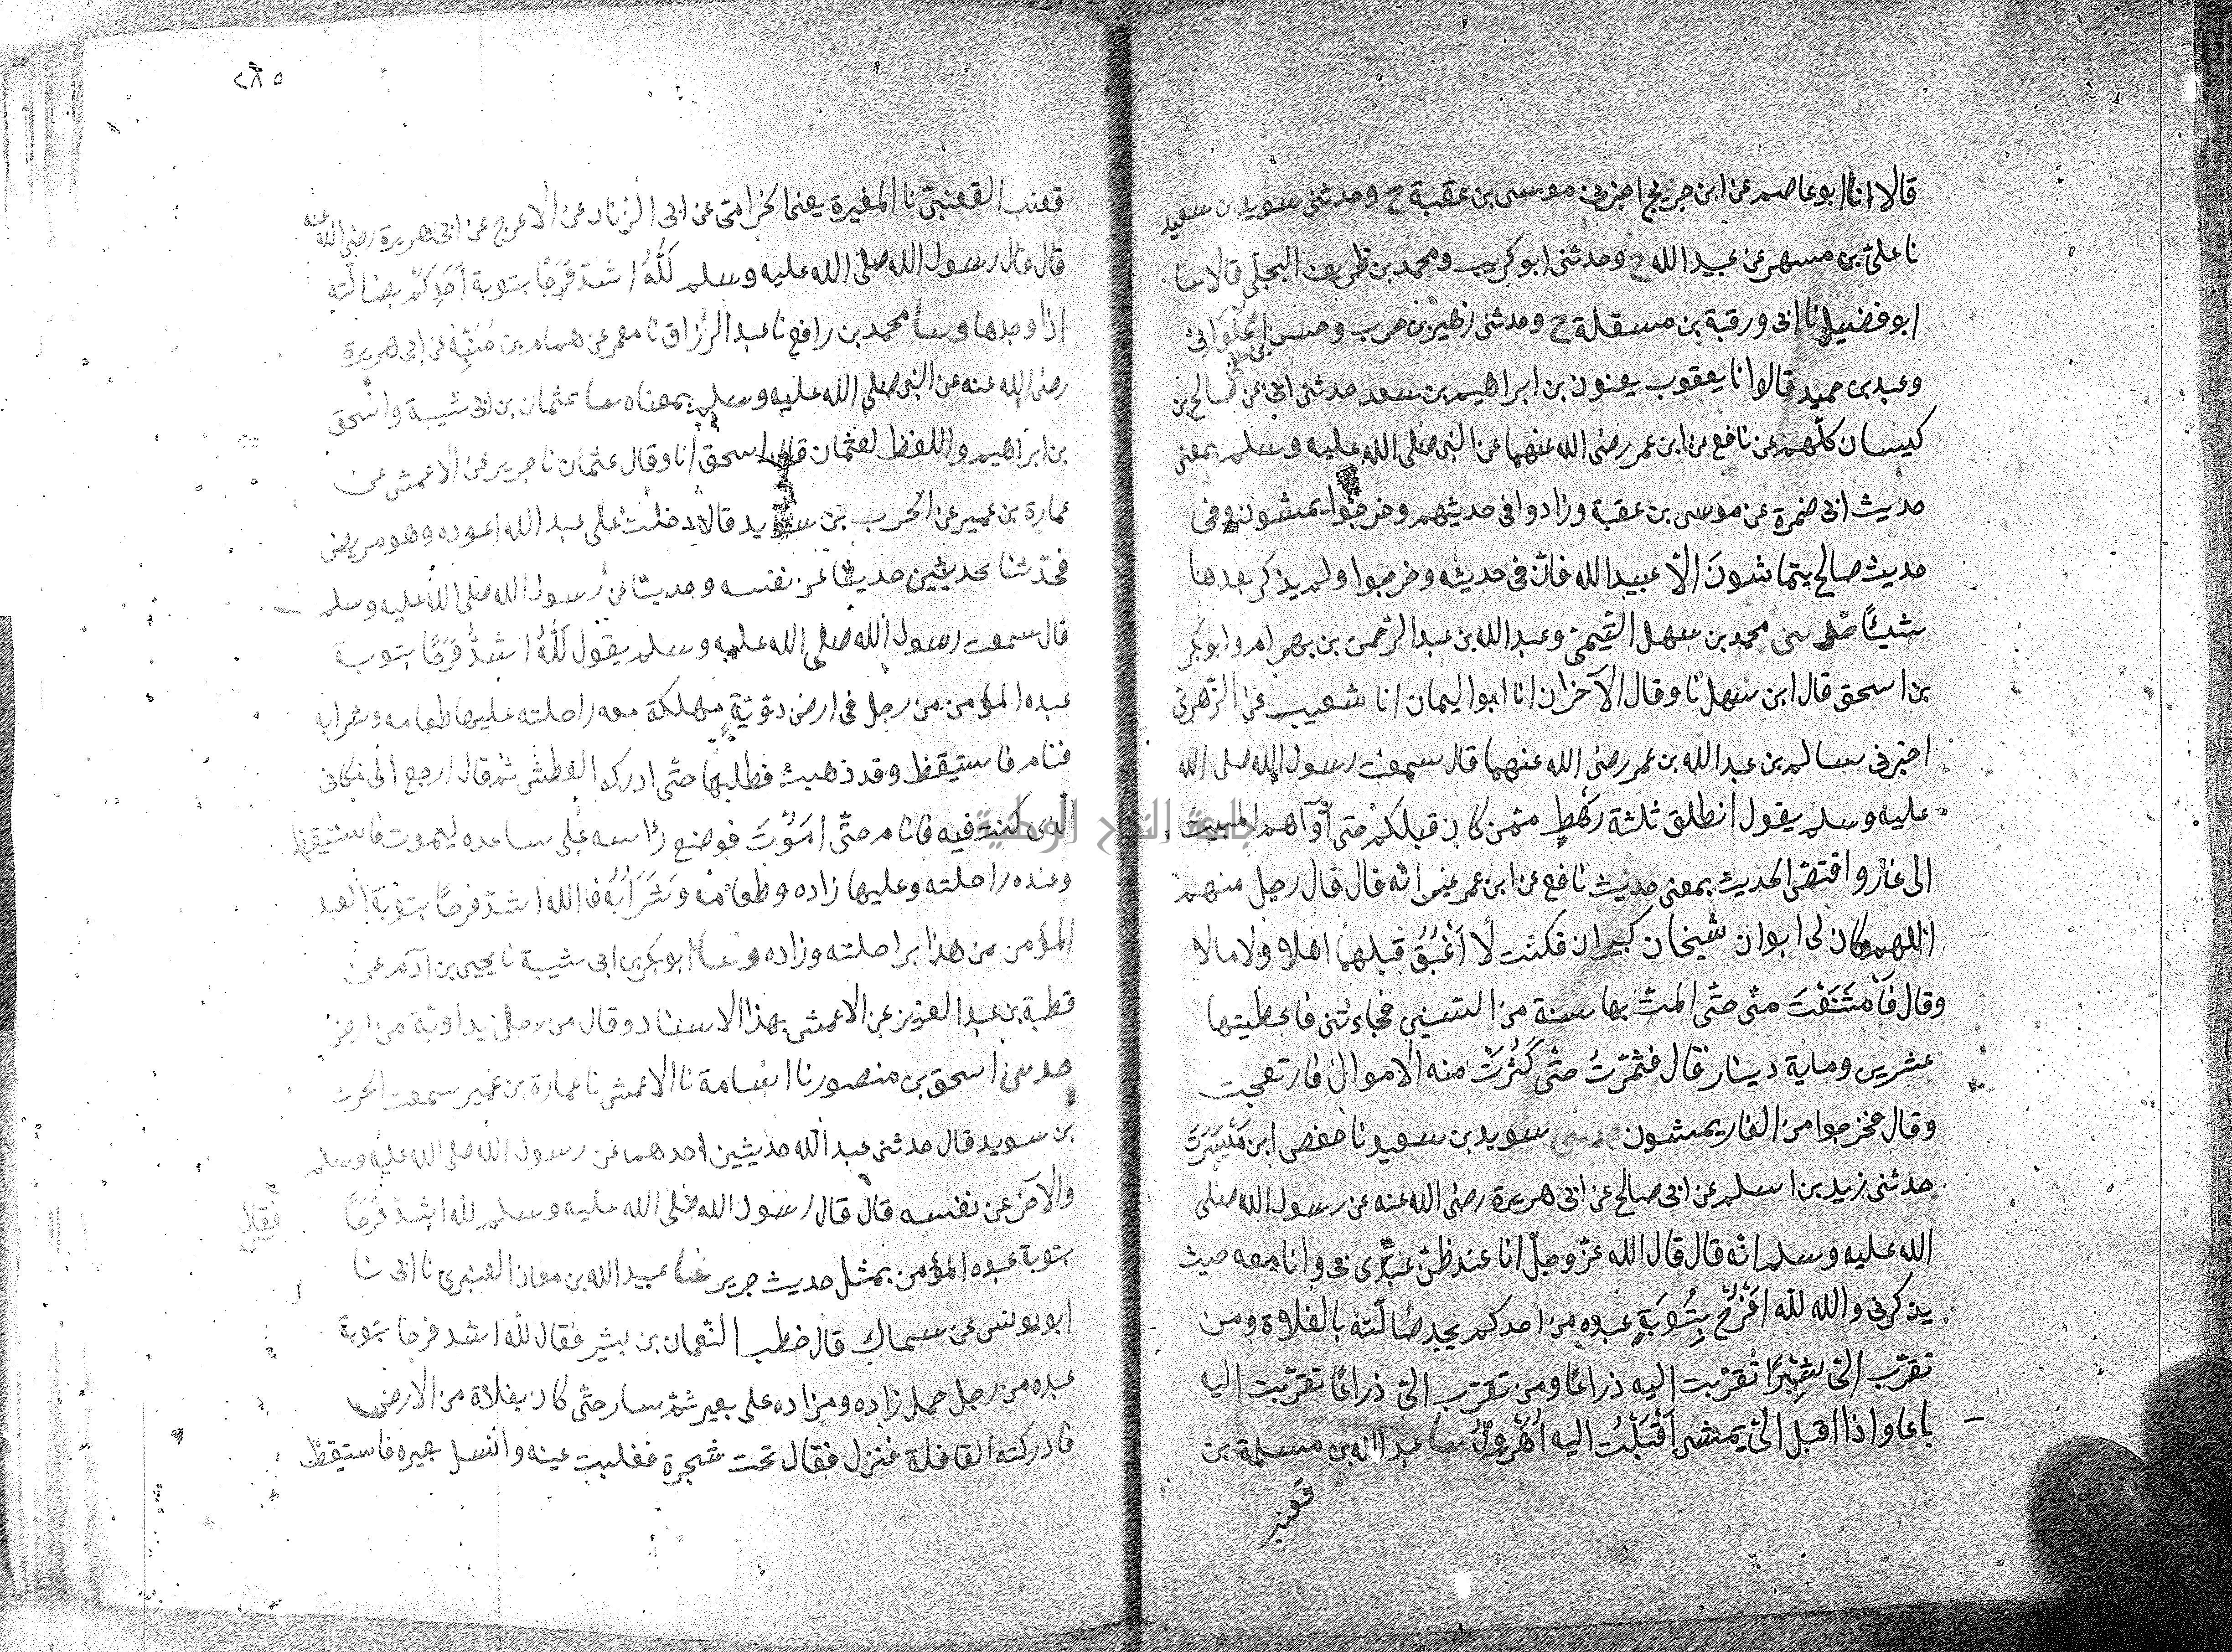 قالا انا ابو عاصم عن ابن جريج اخبرني موسى بن عقبة ح وحدثني سويد بن سعيد
نا علي بن مسهر عن عبيد الله ح وحدثني ابو كريب ومحمد بن طريف البجلي قالا سا
ابو فضيل نا ابي ورقبة بن مسقلة ح وحدثني زهير بن حرب وحسن الحُلْوَاني
بن علي
وعبد بن حميد قالوا نا يعقوب يعنون بن ابراهيم بن سعد حدثني ابي عن صالح بن
كيسان كلّهم عن نافع عن ابن عمر رضى الله عنهما عن النبي صلى الله عليه وسلم بمعنى
حديث ابي ضمرة عن موسى بن عقبة وزادوا في حديثهم وخرجوا يمشون وفى
حديث صالح يتماشونَ الّا عبيد الله فانّ في حديثه وخرجوا ولم يذكر بعدها
شيئًا حدثني محمد بن سهل التّيمي وعبد الله بن عبد الرّحمن بن بهرام وابو بكر
بن اسحق قال ابن سهل نا وقال الآخران انا ابو اليمان انا شعيب عن الزّهري
اخبرني سالم بن عبد الله بن عمر رضى الله عنهما قال سمعت رسول الله صلى الله
عليه وسلم يقول انطلق ثلثة رَهْطٍ ممّن كان قبلكم حتى آوَاهم المبيت
الى غار واقتصّ الحديث بمعنى حديث نافع عن ابن عمر غير انّه قال قال رجل منهم
اللهم كان لي ابوان شيخان كبيران فكنت لا اَغْبُقُ قبلهما اهلا ولا مالا
وقال فَامْتَنَعَتْ منّى حتّى المّت بها سنة من السنين فجاءتني فاعطيتها
عشرين وماية دينار فقال فثمّرتُ حتّى كَثُرَتْ منه الاموال فارتعجت
وقال فخرجوا من الغار يمشون حدثني سويد بن سعيد نا حفص ابن مَيْسَرَةَ
حدثني زيد بن اسلم عن ابي صالح عن ابي هريرة رضى الله عنه عن رسول الله صلى
الله عليه وسلم انّه قال قال الله عزّ وجلّ انا عند ظنّ عَبْدِى بى وانا معه حيث
يذكرني والله لله اَفْرَحُ بِتَوْبَةِ عبده من احدكم يجد ضالّته بالفلاة ومن
تقرّب الىّ شِبْرًا تقرّبت اليه ذراعًا ومن تقرّب الىّ ذراعًا تقرّبت اليه
باعا واذا اقبل الىّ يمشي اَقْبَلْتُ اليه اُهَرْوِلُ سا عبد الله بن مسلمة بن
قعنب
٢٨٥
قعنب القعنبيّ نا المغيرة يعني الحزامي عن ابى الزناد عن الاعرج عن ابى هريرة رضى الله عنه
قال قال رسول الله صلى الله عليه وسلم لَلّهُ اشدّ فَرَحًا بتوبة اَحَدِكُم بضالّته
اذا وجدها وسا محمد بن رافع نا عبد الرّزاق نا معمر عن همام بن مُنَبِّهٍ عن ابى هريرة
رضى الله عنه عن النبى صلى الله عليه وسلم بمعناه سا عثمان بن ابى شيبة واسحق
بن ابراهيم واللفظ لعثمان قال اسحق انا وقال عثمان نا جرير عن الاعمش عن
عمارة بن عمير عن الحرث بن سويد قال دخلت على عبد الله اعوده وهو مريض
فحدّثنا بحديثين حديثا عن نفسه وحديثا عن رسول الله صلى الله عليه وسلم
قال سمعت رسول الله صلى الله عليه وسلم يقول لَلّهُ اشدُّ فَرَحًا بتوبة
عبده المؤمن من رجل في ارض دوّيّةٍ مهلكة معه راحلته عليها طعامه وشرابه
فنام فاستيقظ وقد ذهبت فطلبها حتّى ادركه العطش ثم قال ارجع الى مكانى
الذى كنت فيه فانام حتّى اَمُوْتَ فوضع راسه على ساعده ليموت فاستيقظ
وعنده راحلته وعليها زاده وطعامه وَشَرَابُه فالله اشدّ فرحًا بتوبة العبد
المؤمن من هذا براحلته وزاده وسا ابو بكر بن ابى شيبة نا يحيى بن آدم عن
قطبة بن عبد العزيز عن الاعمش بهذا الاسناد وقال من رجل بداوية من الارض
حدثني اسحق بن منصور نا اسامة نا الاعمش نا عمارة بن عمير سمعت الحرث
بن سويد قال حدثنى عبد الله حديثين احدهما عن رسول الله صلى الله عليه وسلم
والآخر عن نفسه قال قال رسول الله صلى الله عليه وسلم لله اشدّ فرحًا
فقال
بتوبة عبده المؤمن بمثل حديث جرير سا عبيد الله بن معاذ العنبرى نا ابى نا
ابو يونس عن سماك قال خطب النّعمان بن بشير فقال لله اشد فرحا بتوبة
عبده من رجل حمل زاده ومزاده على بعير ثمّ سار حتّى كان بفلاة من الارض
فادركته القافلة فنزل فقال تحت شجرة فغلبت عينه وانسل بعيره فاستيقظ